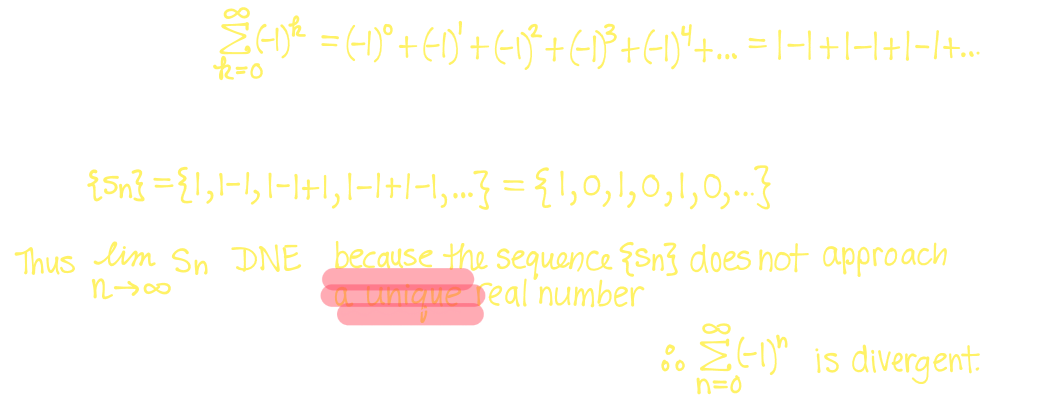 ∞∑k=0 (-1)^k = (-1)^0 + (-1)^1 + (-1)^2 + (-1)^3 + (-1)^4 + ... = 1-1+1-1+1-1+...
{sn} = {1, 1-1, 1-1+1, 1-1+1-1, ...} = {1, 0, 1, 0, 1, 0, ...}
Thus lim n→∞ Sn DNE because the sequence {sn} does not approach
a unique real number
∴ ∞∑n=0 (-1)^n is divergent.